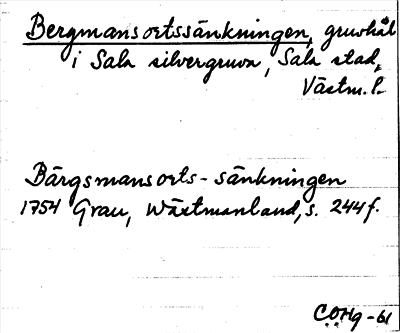 Bergmansortssänkningen, gruvhål
i Sala silvergruva, Sala stad,
Västm. l.
Bärgsmansorts-sänkningen
1754 Grau, Wästmanland, s. 244 f.
COHg-61